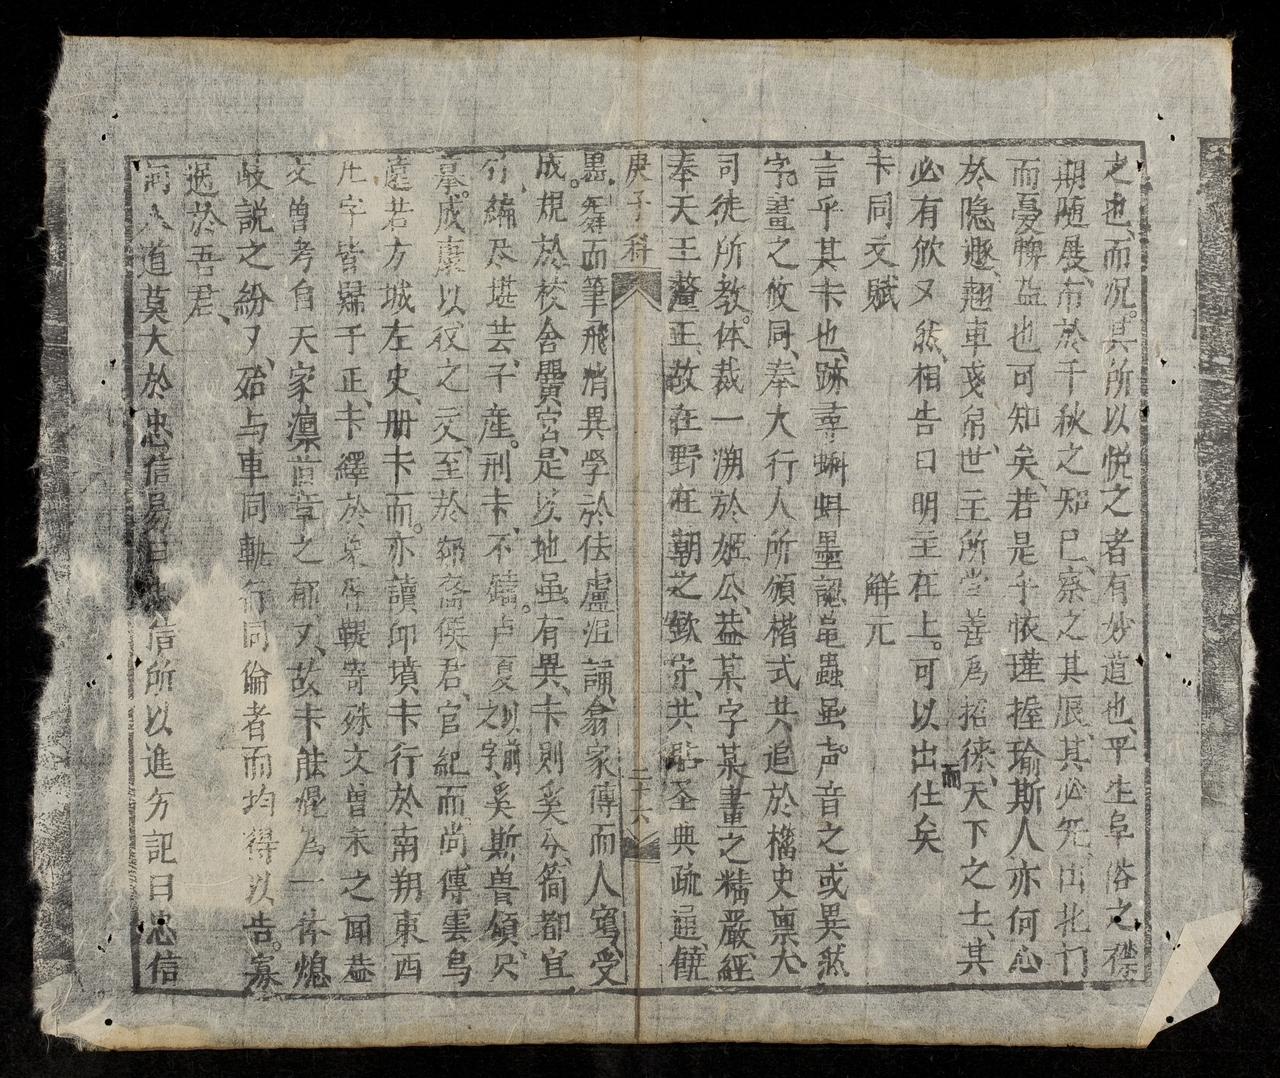 之也、而况。其所以悦之者有妙道也、平生阜俗之襟
期随展、布於千秋之知已、察之其辰、其必先出北门
而憂轉益也可知矣、若是乎懷瑾握瑜斯人亦何心
於隐遯、翹車戋帛、世主所尝善爲招徠、天下之士、其
必有欣又然、相告曰明主在上。可以出仕矣
而
卡同文赋
解元
言乎其卡也、跡辜蝌蚪墨認黾蟲虽。声音之或異然
字。畫之攸同、奉大行人所頒楷式共追於檔史禀大
司徒所教。体裁一溯於姬公、益某字某畫之精嚴、經
奉天王釐正、故在野在朝之欽守、共 圣典疏通、饒
庚子科
二十六
愚。舜而筆飛 異學於佉盧沮誦翕家傳而人寫、受
成。規於校舍黌宫、是以地虽有異、卡則奚分、简都宜
行、編尽堪芸、子産。刑卡、不鑄。卢夏之字、奚斯曽頌、尺
以前
摹。成康以後之文、至於 裔侯君、官紀而尚傳雲鸟
遠若方城左史、册卡而。亦讀卬墳、卡行於南朔東西
片字皆歸于正、卡繹於 輶寄殊文曽未之聞益
文曽考自天家凛 章之郁又、故卡能 爲一体熄
岐説之紛又、殆与車同軌行同倫者而均得以告。寡
過於吾君、
道莫大於忠信易曰忠信所以進 記曰忠信